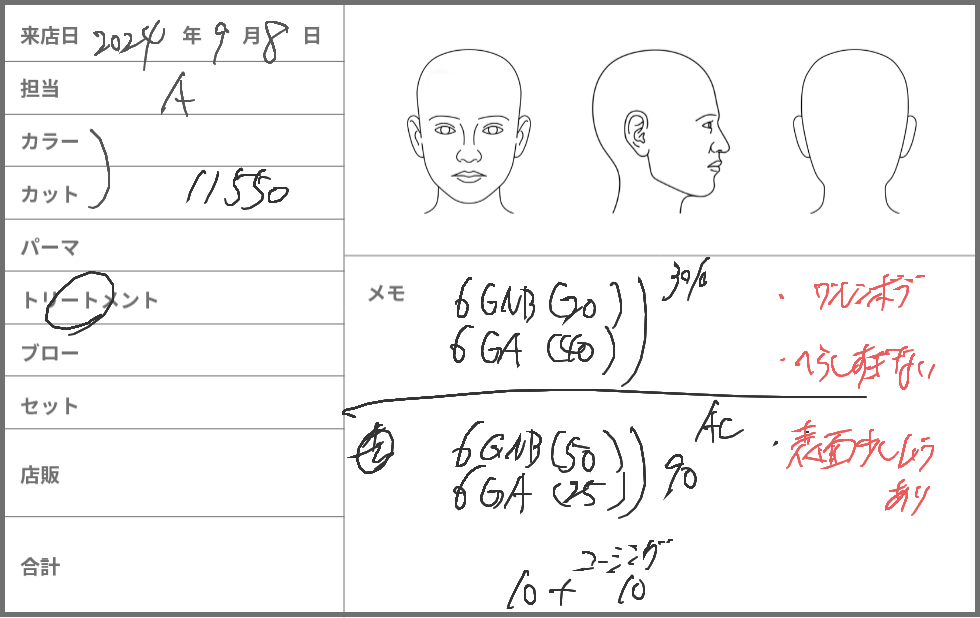 来店日 2024 年 9 月 8 日
担当 A
カラー
カット 11550
パーマ
トリートメント
ブロー
セット
店販
合計
メモ
6GNB (20)
6GA (40)
30%
・ワンレンボブ
・へらしすぎない
6GNB (50)
6GA (25)
90
AC
・表面少しだんあり
コーミング
10 + 10